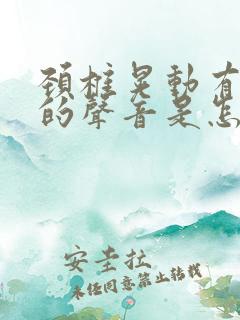 頚椎晃動有
的聲音是怎
安圭拉
未经同意禁止转载